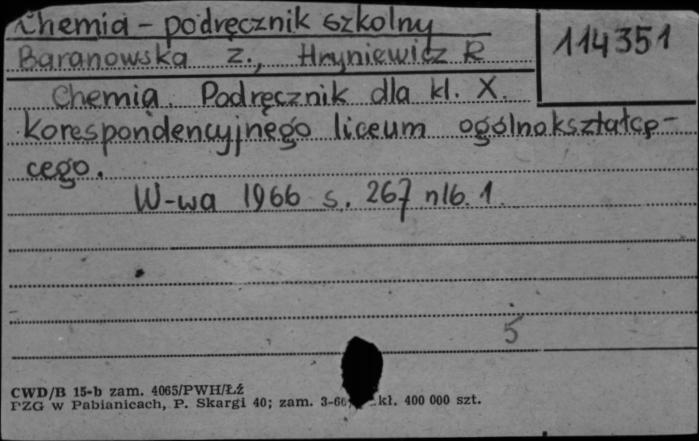 Chemia - podręcznik szkolny
114351
Baranowska Z., Hryniewicz R
Chemia. Podręcznik dla kl. X.
korespondencyjnego liceum ogólnokształcą-
cego.
W-wa 1966 s. 267 nlb. 1.
5
CWD/B 15-b zam. 4065/PWH/Łź
PZG w Pabianicach, P. Skargi 40; zam. kł. 400 000 szt.